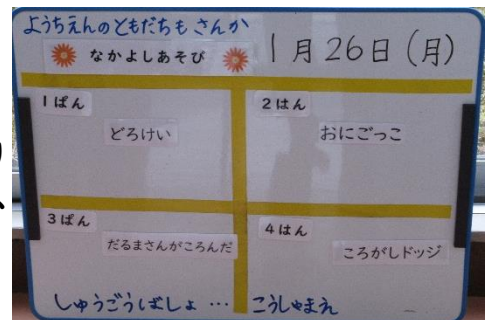 ようちえんのともだちもさんか
なかよしあそび
1月26日(月)
1ぱん
どろけい
2はん
おにごっこ
3ぱん
だるまさんがころんだ
4はん
ころがしドッジ
しゅうごうばしょ… こうしゃまえ